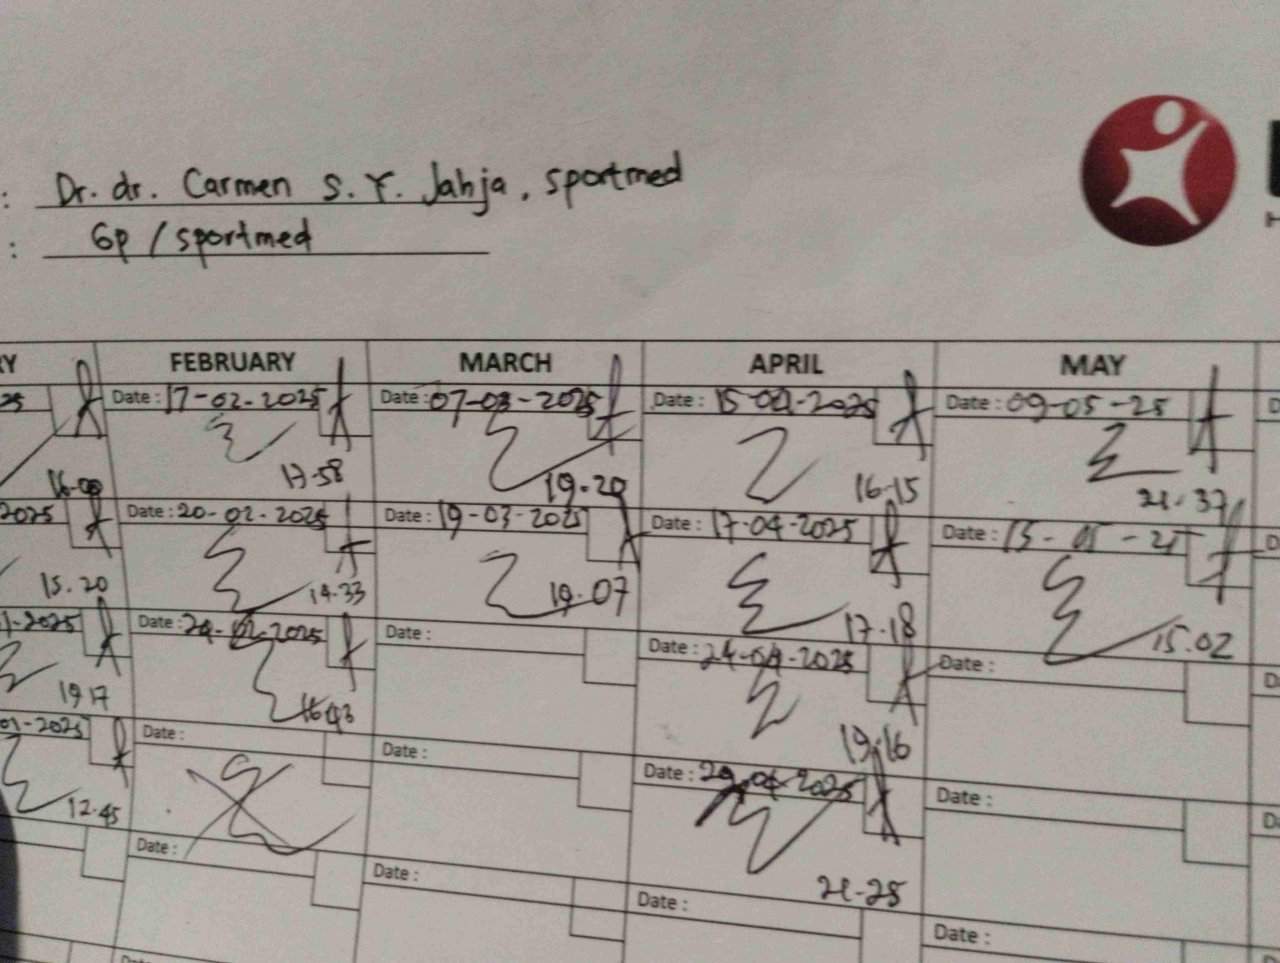 : Dr. dr. Carmen S. Y. Jahja, sportmed
: Gp / sportmed
RY FEBRUARY MARCH APRIL MAY
25 Date : 17-02-2025 Date : 07-03-2025 Date : 15-04-2025 Date : 09-05-25 D
16.00 17.58 19.29 16.15 21.37
2025 Date : 20-02-2025 Date : 19-03-2025 Date : 17-04-2025 Date : 15-05-25 D
15.20 14.33 19.07 17.18 15.02
1-2025 Date : 24-02-2025 Date : Date : 24-04-2025 Date : D
19 17 16 43 19.16
01-2025 Date : Date : Date : 29.04.2025 Date : D
12.45 21-25
Date : Date : Date : Date :